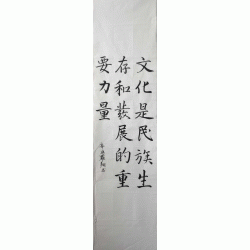 文化是民族生
存和發展的重
要力量